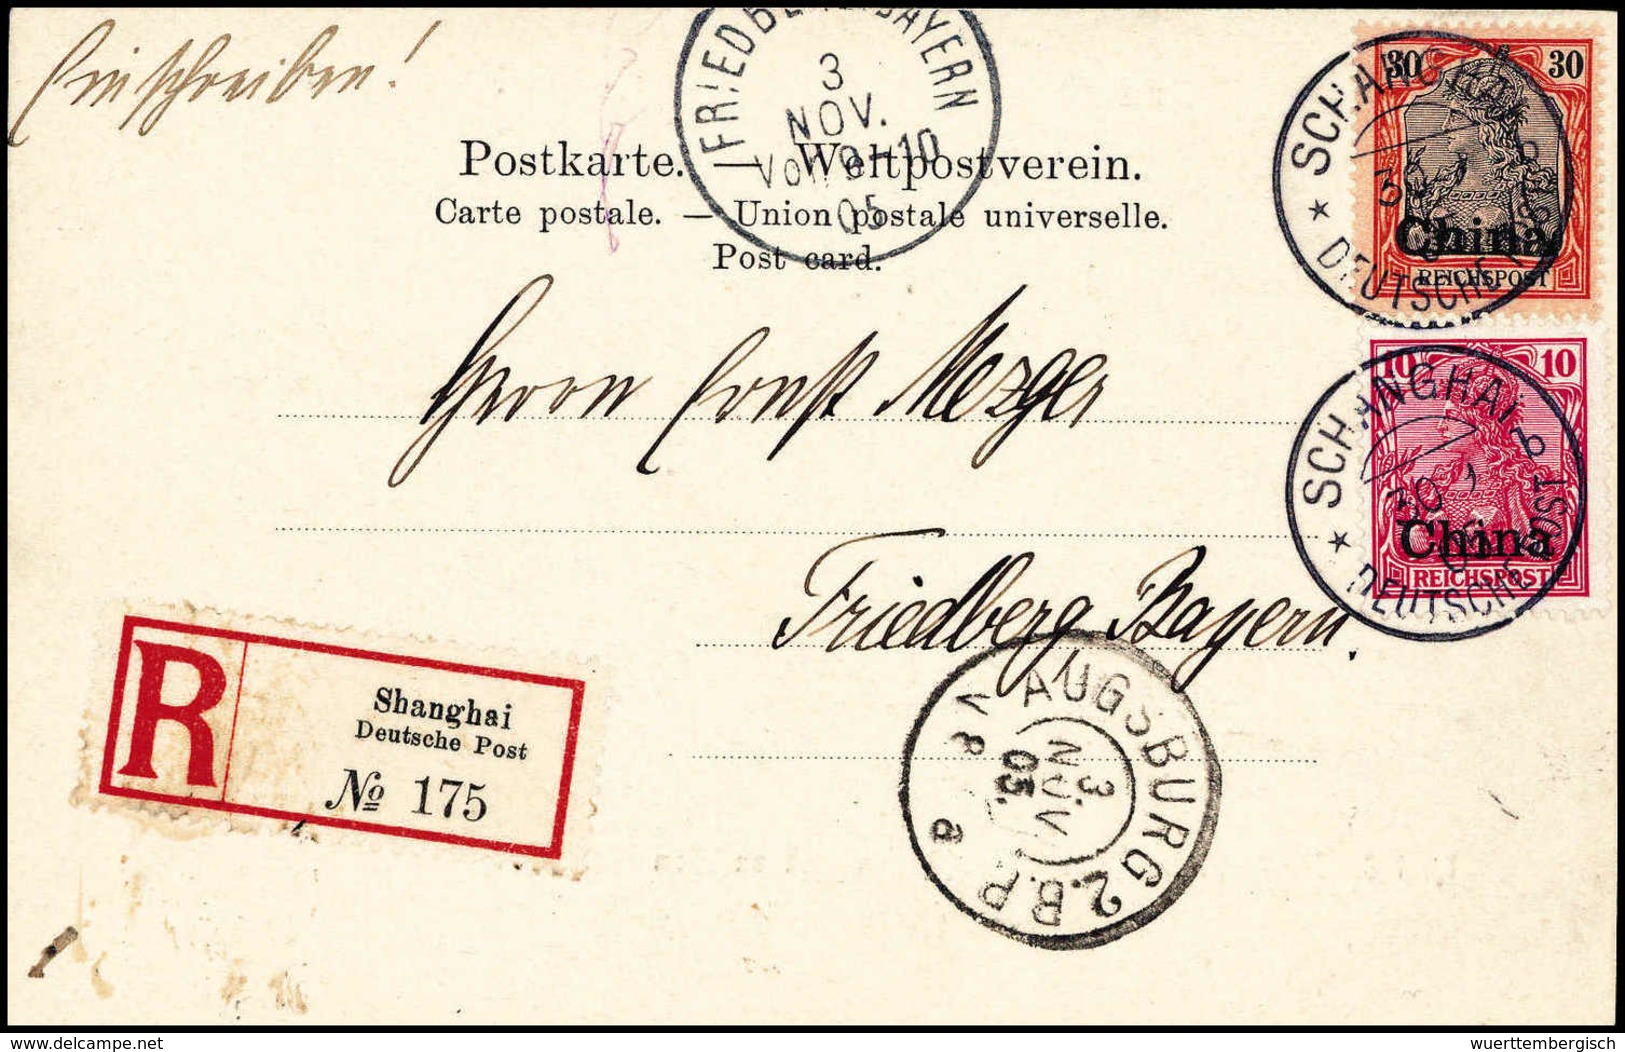 Einschreiben!
FRIEDBERG BAYERN
3
NOV.
05
Postkarte. — Weltpostverein.
Carte postale. — Union postale universelle.
Post card.
30 30
China
REICHSPOST
SCHANGHAI
★ DEUTSCHE POST
10 10
China
REICHSPOST
SCHANGHAI
30
★ DEUTSCHE POST
Herrn Ernst Mezger
Friedberg Bayern.
R
Shanghai
Deutsche Post
№ 175
AUGSBURG 2.B.P.
3.
NOV
05.
V 8
a
delcampe.net
wuerttembergisch